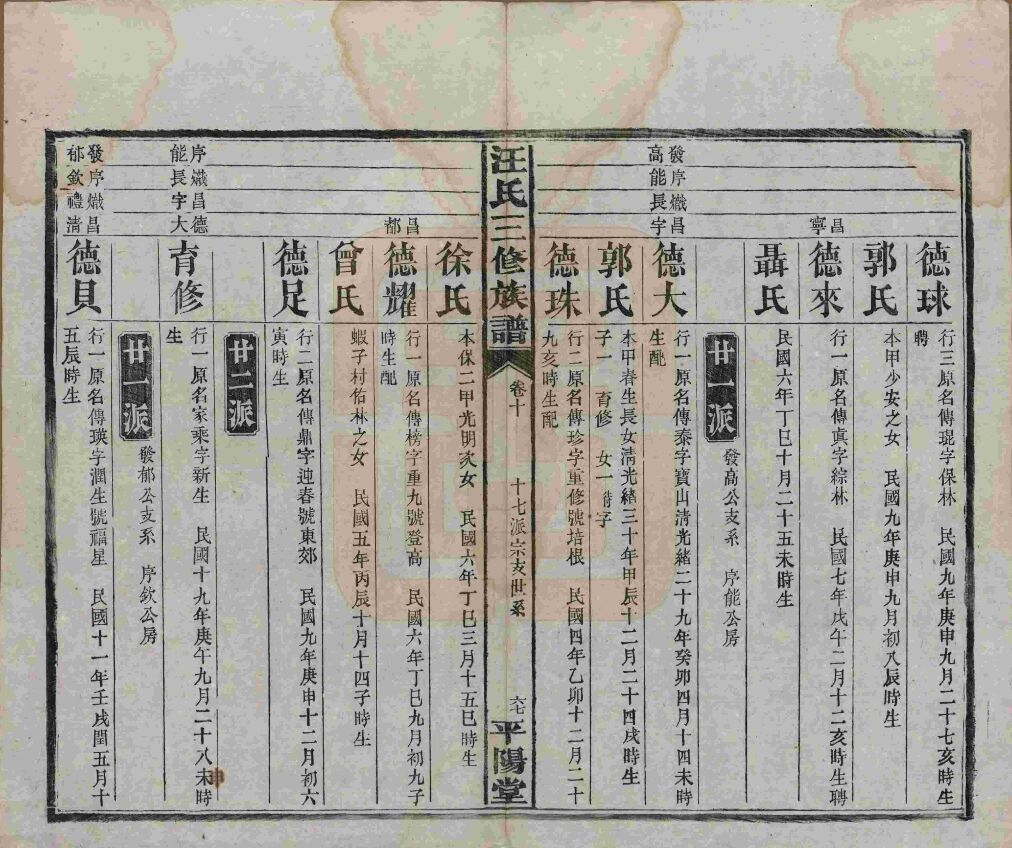 德球
行三原名傳琨字保林　民國九年庚申九月二十七亥時生
聘
郭氏
本甲少安之女　民國九年庚申九月初八辰時生
昌
寧
德來
行一原名傳真字綜林　民國七年戊午二月十二亥時生聘
聶氏
民國六年丁巳十月二十五未時生
廿一派
發高公支系　序能公房
發序熾昌
高能長字
德大
行一原名傳泰字寶山清光緒二十九年癸卯四月十四未時
生配
郭氏
本甲春生長女清光緒三十年甲辰十二月二十四戌時生
子一　育修　女一待字
德珠
行二原名傳珍字重修號培根　民國四年乙卯十二月二十
九亥時生配
汪氏三修族譜
卷十
十七派宗支世系
六七
平陽堂
徐氏
本保二甲光明次女　民國六年丁巳三月十五巳時生
昌
都
德耀
行一原名傳榜字重九號登高　民國六年丁巳九月初九子
時生配
曾氏
蝦子村佑林之女　民國五年丙辰十月十四子時生
德足
行二原名傳鼎字迎春號東郊　民國九年庚申十二月初六
寅時生
廿二派
序熾昌德
能長字大
育修
行一原名家乘字新生　民國十九年庚午九月二十八未時
生
廿一派
發郁公支系　序欽公房
發序熾昌
郁欽禮清
德貝
行一原名傳瑛字潤生號福星　民國十一年壬戌閏五月十
五辰時生